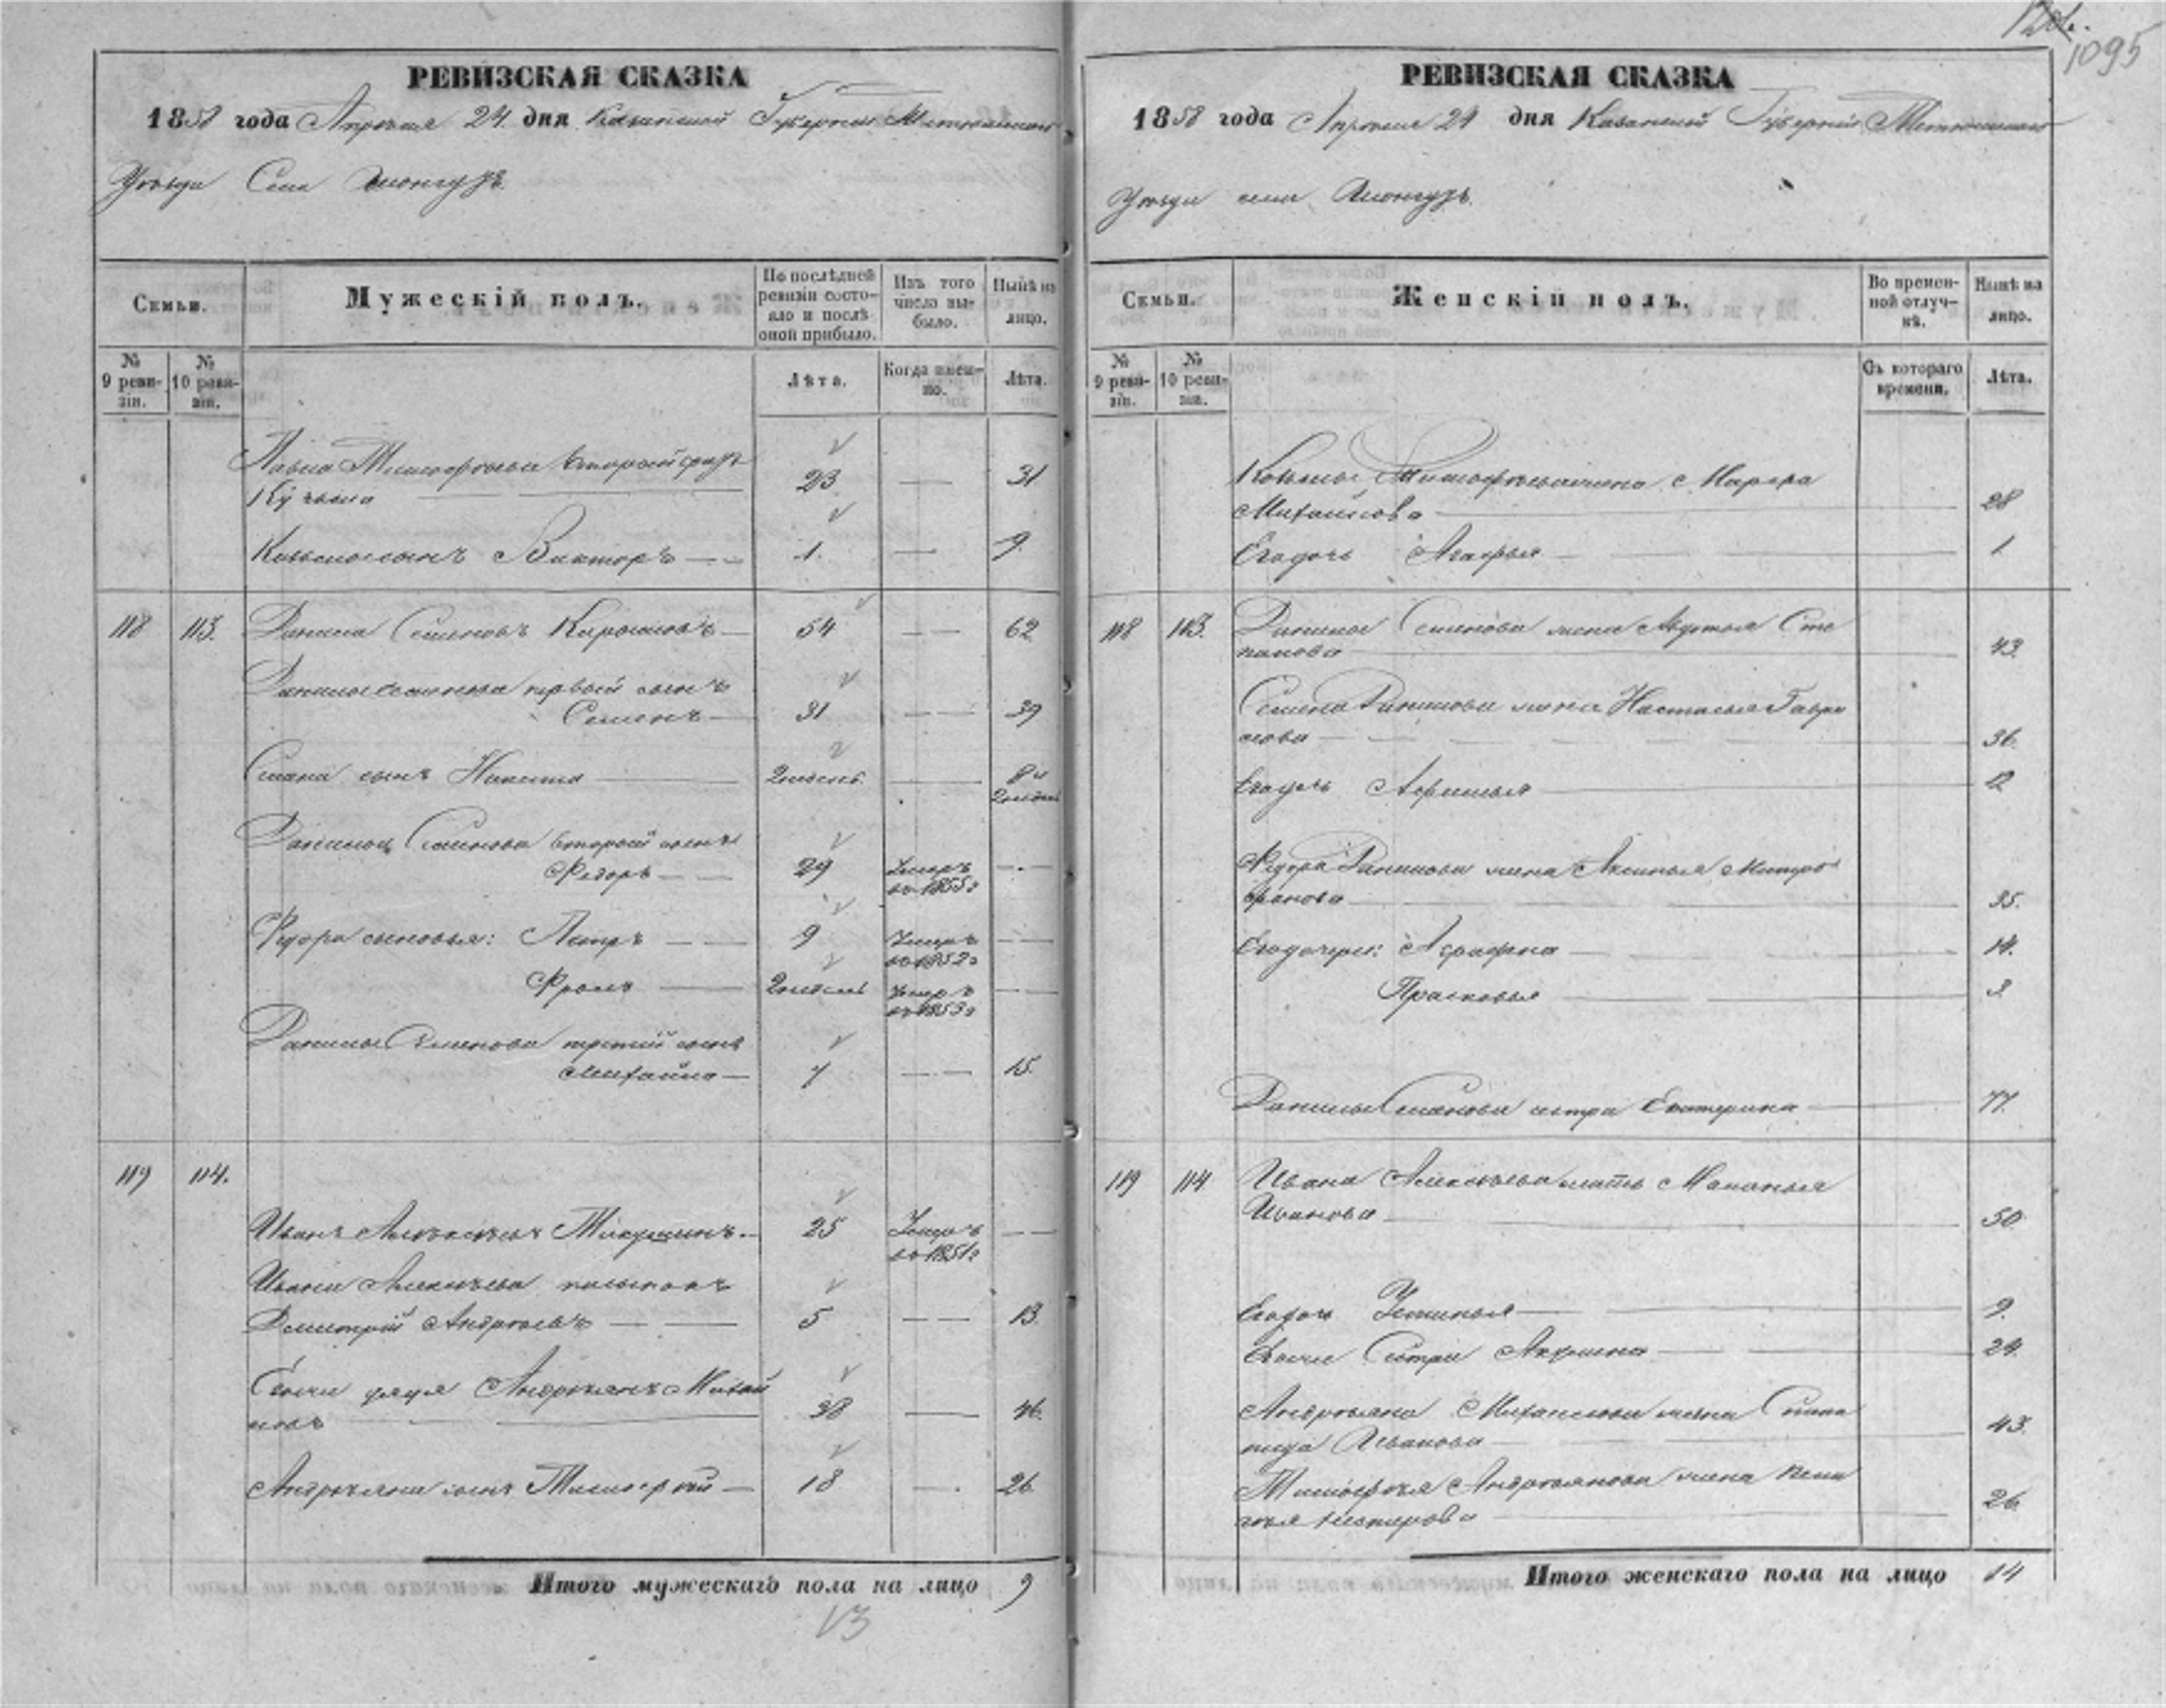 1095
РЕВИЗСКАЯ СКАЗКА
1858 года Апреля 24 дня Казанской Губернии
Уезда Села
Семьи.
Мужескій полъ.
По послѣдней ревизіи состо-
яло и послѣ
оной прибыло.
Изъ того
числа вы-
было.
Нынѣ на
лицо.
№
9 реви-
зіи.
№
10 реви-
зіи.
Лѣта.
Когда имен-
но.
Лѣта.
второй
23 — 31
сынъ Викторъ — 1. — 9
118 113. Данила Семеновъ — 54 — 62
Данилы Семенова первый сынъ
Семенъ — 31 — 39
сынъ Никита — — 8 и
Данилы Семенова второй сынъ
Федоръ — 29 Умеръ —
въ 1855г
Федора сыновья: Петръ — 9 Умеръ —
въ 1852г
Фролъ — Умеръ —
въ 1853г
Данилы Семенова третий сынъ
Михайла — 7 — 15.
119 114.
Иванъ Алексеевъ — 25 Умеръ —
въ 1851г
Ивана Алексеева
Дмитрий Андреевъ — 5 — 13.
дядя Андреянъ Михай
ловъ — 38 — 46.
Андреяна сынъ Тимофей — 18 — 26.
Итого мужескаго пола на лицо 9
13
РЕВИЗСКАЯ СКАЗКА
1858 года Апреля 24 дня Казанской Губернии
Уезда села
Семьи.
Женскій полъ.
Во времен-
ной отлуч-
кѣ.
Нынѣ на
лицо.
№
9 реви-
зіи.
№
10 реви-
зіи.
Съ котораго
времени.
Лѣта.
Марфа
Михайлова — 28
Его дочь Агафья — 1
118 113. Данилы Семенова жена Авдотья Сте
панова — 43.
Семена Данилова жена Настасья Гаври
лова — 36.
Его дочь — 12
Федора Данилова жена Аксинья Митро
фанова — 35.
Его дочери: Аграфена — 14.
Прасковья —
Данилы Семенова сестра Екатерина — 77.
119 114 Ивана Алексеева мать Маланья
Иванова — 50
Его дочь Устинья — 9.
сестра Акулина — 29.
Андреяна Михайлова жена Степа
нида Иванова — 43.
Тимофея Андреянова жена Пела
гея Нестерова — 26.
Итого женскаго пола на лицо 14